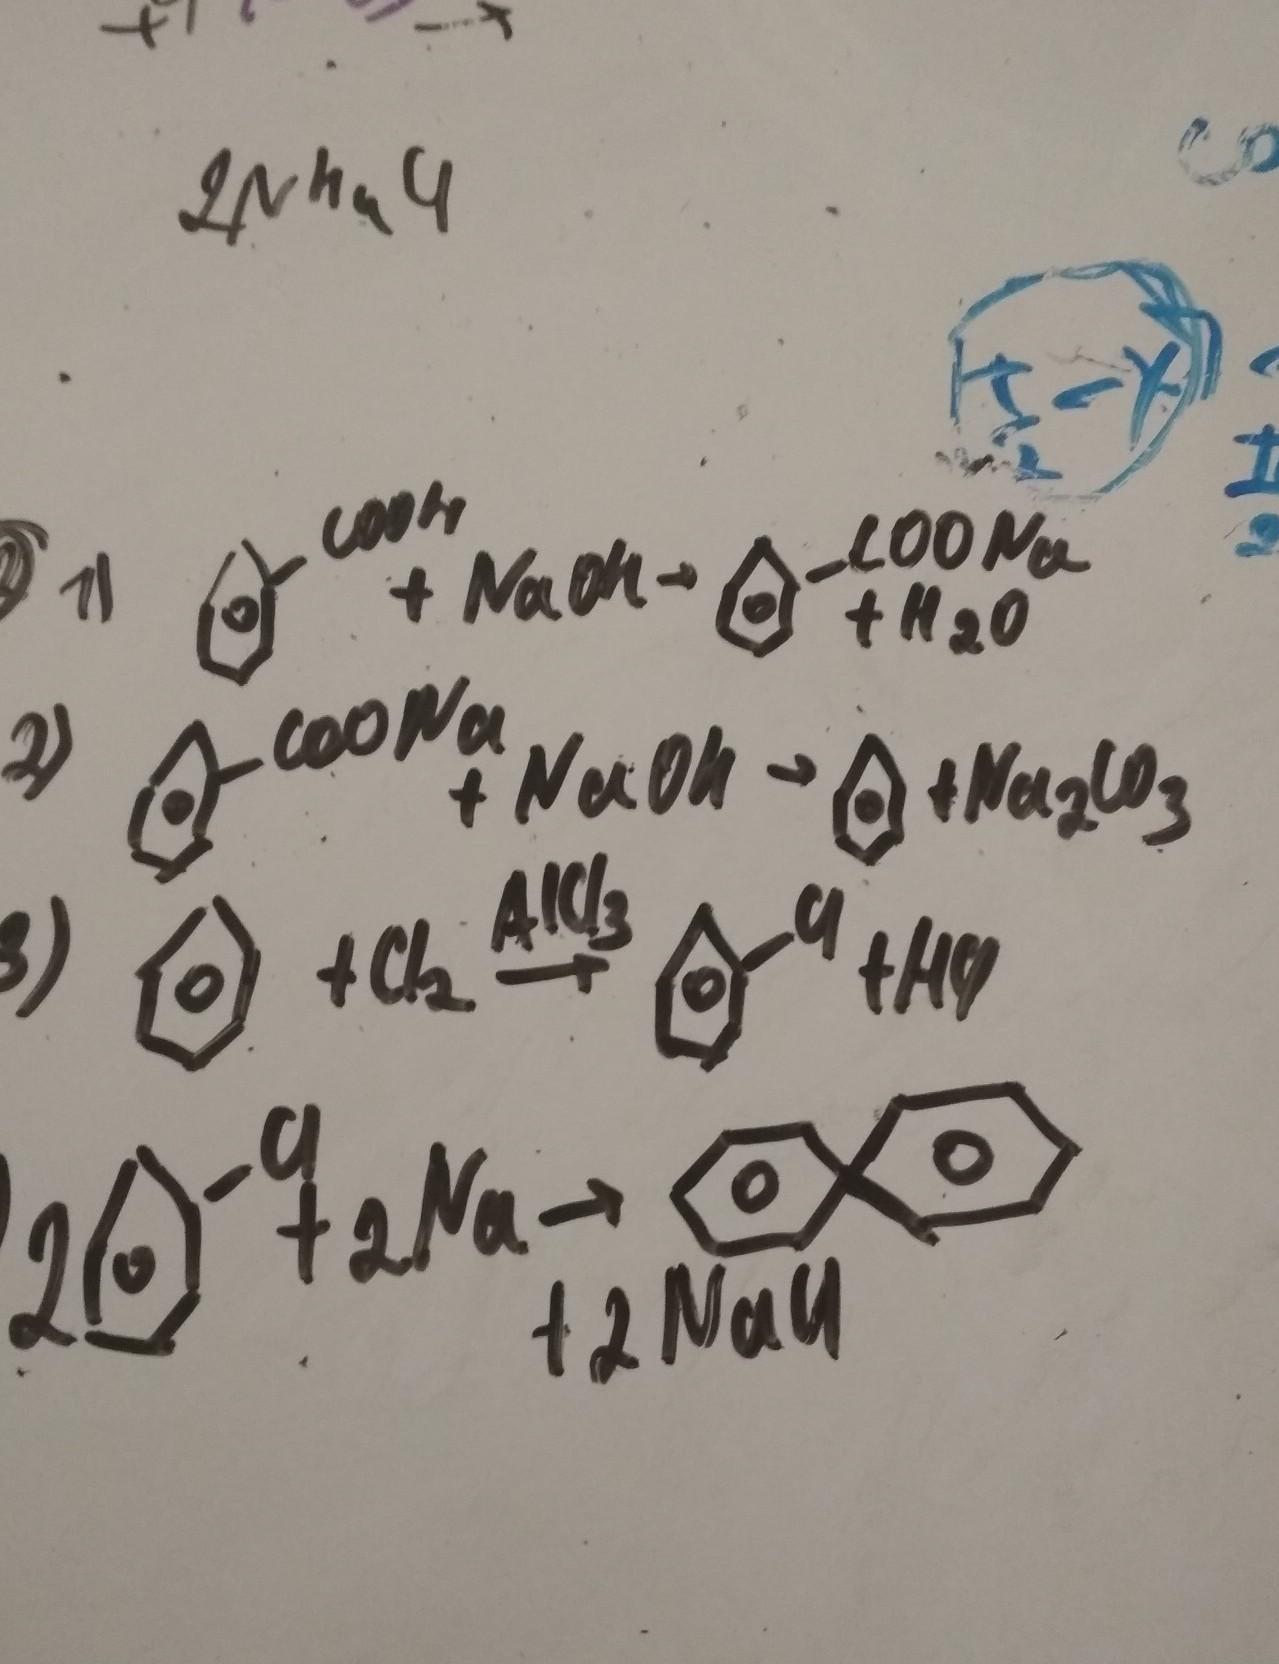 2NH4Cl
1) COOH + NaOH → COONa + H2O
2) COONa + NaOH → + Na2CO3
3) + Cl2 AlCl3 → Cl + HCl
2 Cl + 2Na →
+ 2NaCl